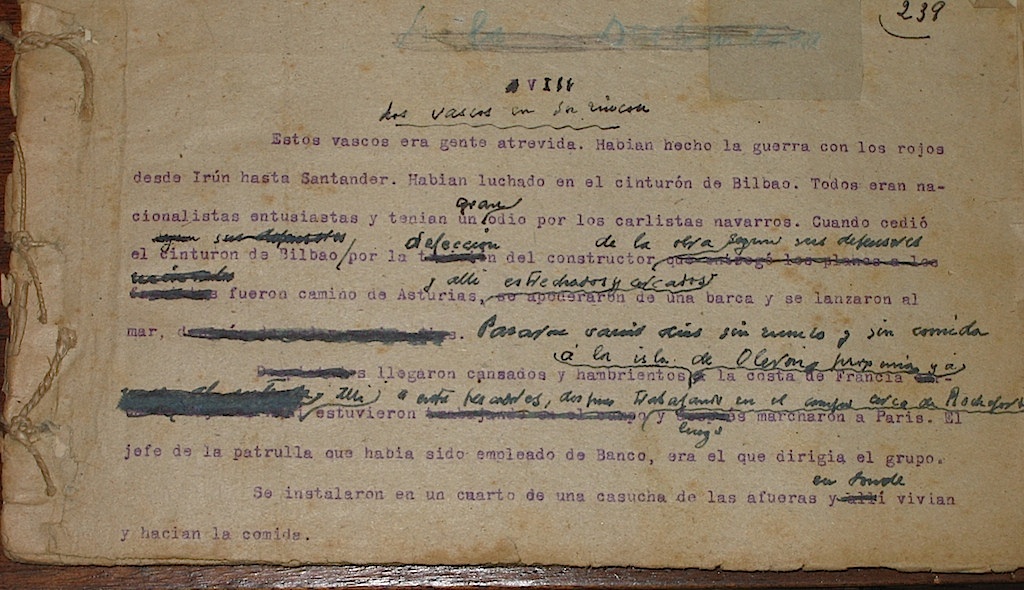 239
VIII
Los vascos en su rincon
Estos vascos era gente atrevida. Habian hecho la guerra con los rojos
desde Irún hasta Santander. Habian luchado en el cinturón de Bilbao. Todos eran na-
gran
cionalistas entusiastas y tenian un odio por los carlistas navarros. Cuando cedió
defección de la obra segun sus defensores
el cinturon de Bilbao por la del constructor que entregó los planos a los
y alli estrechados y cercados
fueron camino de Asturias, se apoderaron de una barca y se lanzaron al
mar, Pasaron varios dias sin rumbo y sin comida
á la isla de Oleron
llegaron cansados y hambrientos a la costa de Francia
alli despues trabajando en el campo cerca de Rochefort
estuvieron trabajando en el campo y después marcharon a Paris. El
luego
jefe de la patrulla que habia sido empleado de Banco, era el que dirigia el grupo.
en donde
Se instalaron en un cuarto de una casucha de las afueras y allí vivian
y hacian la comida.